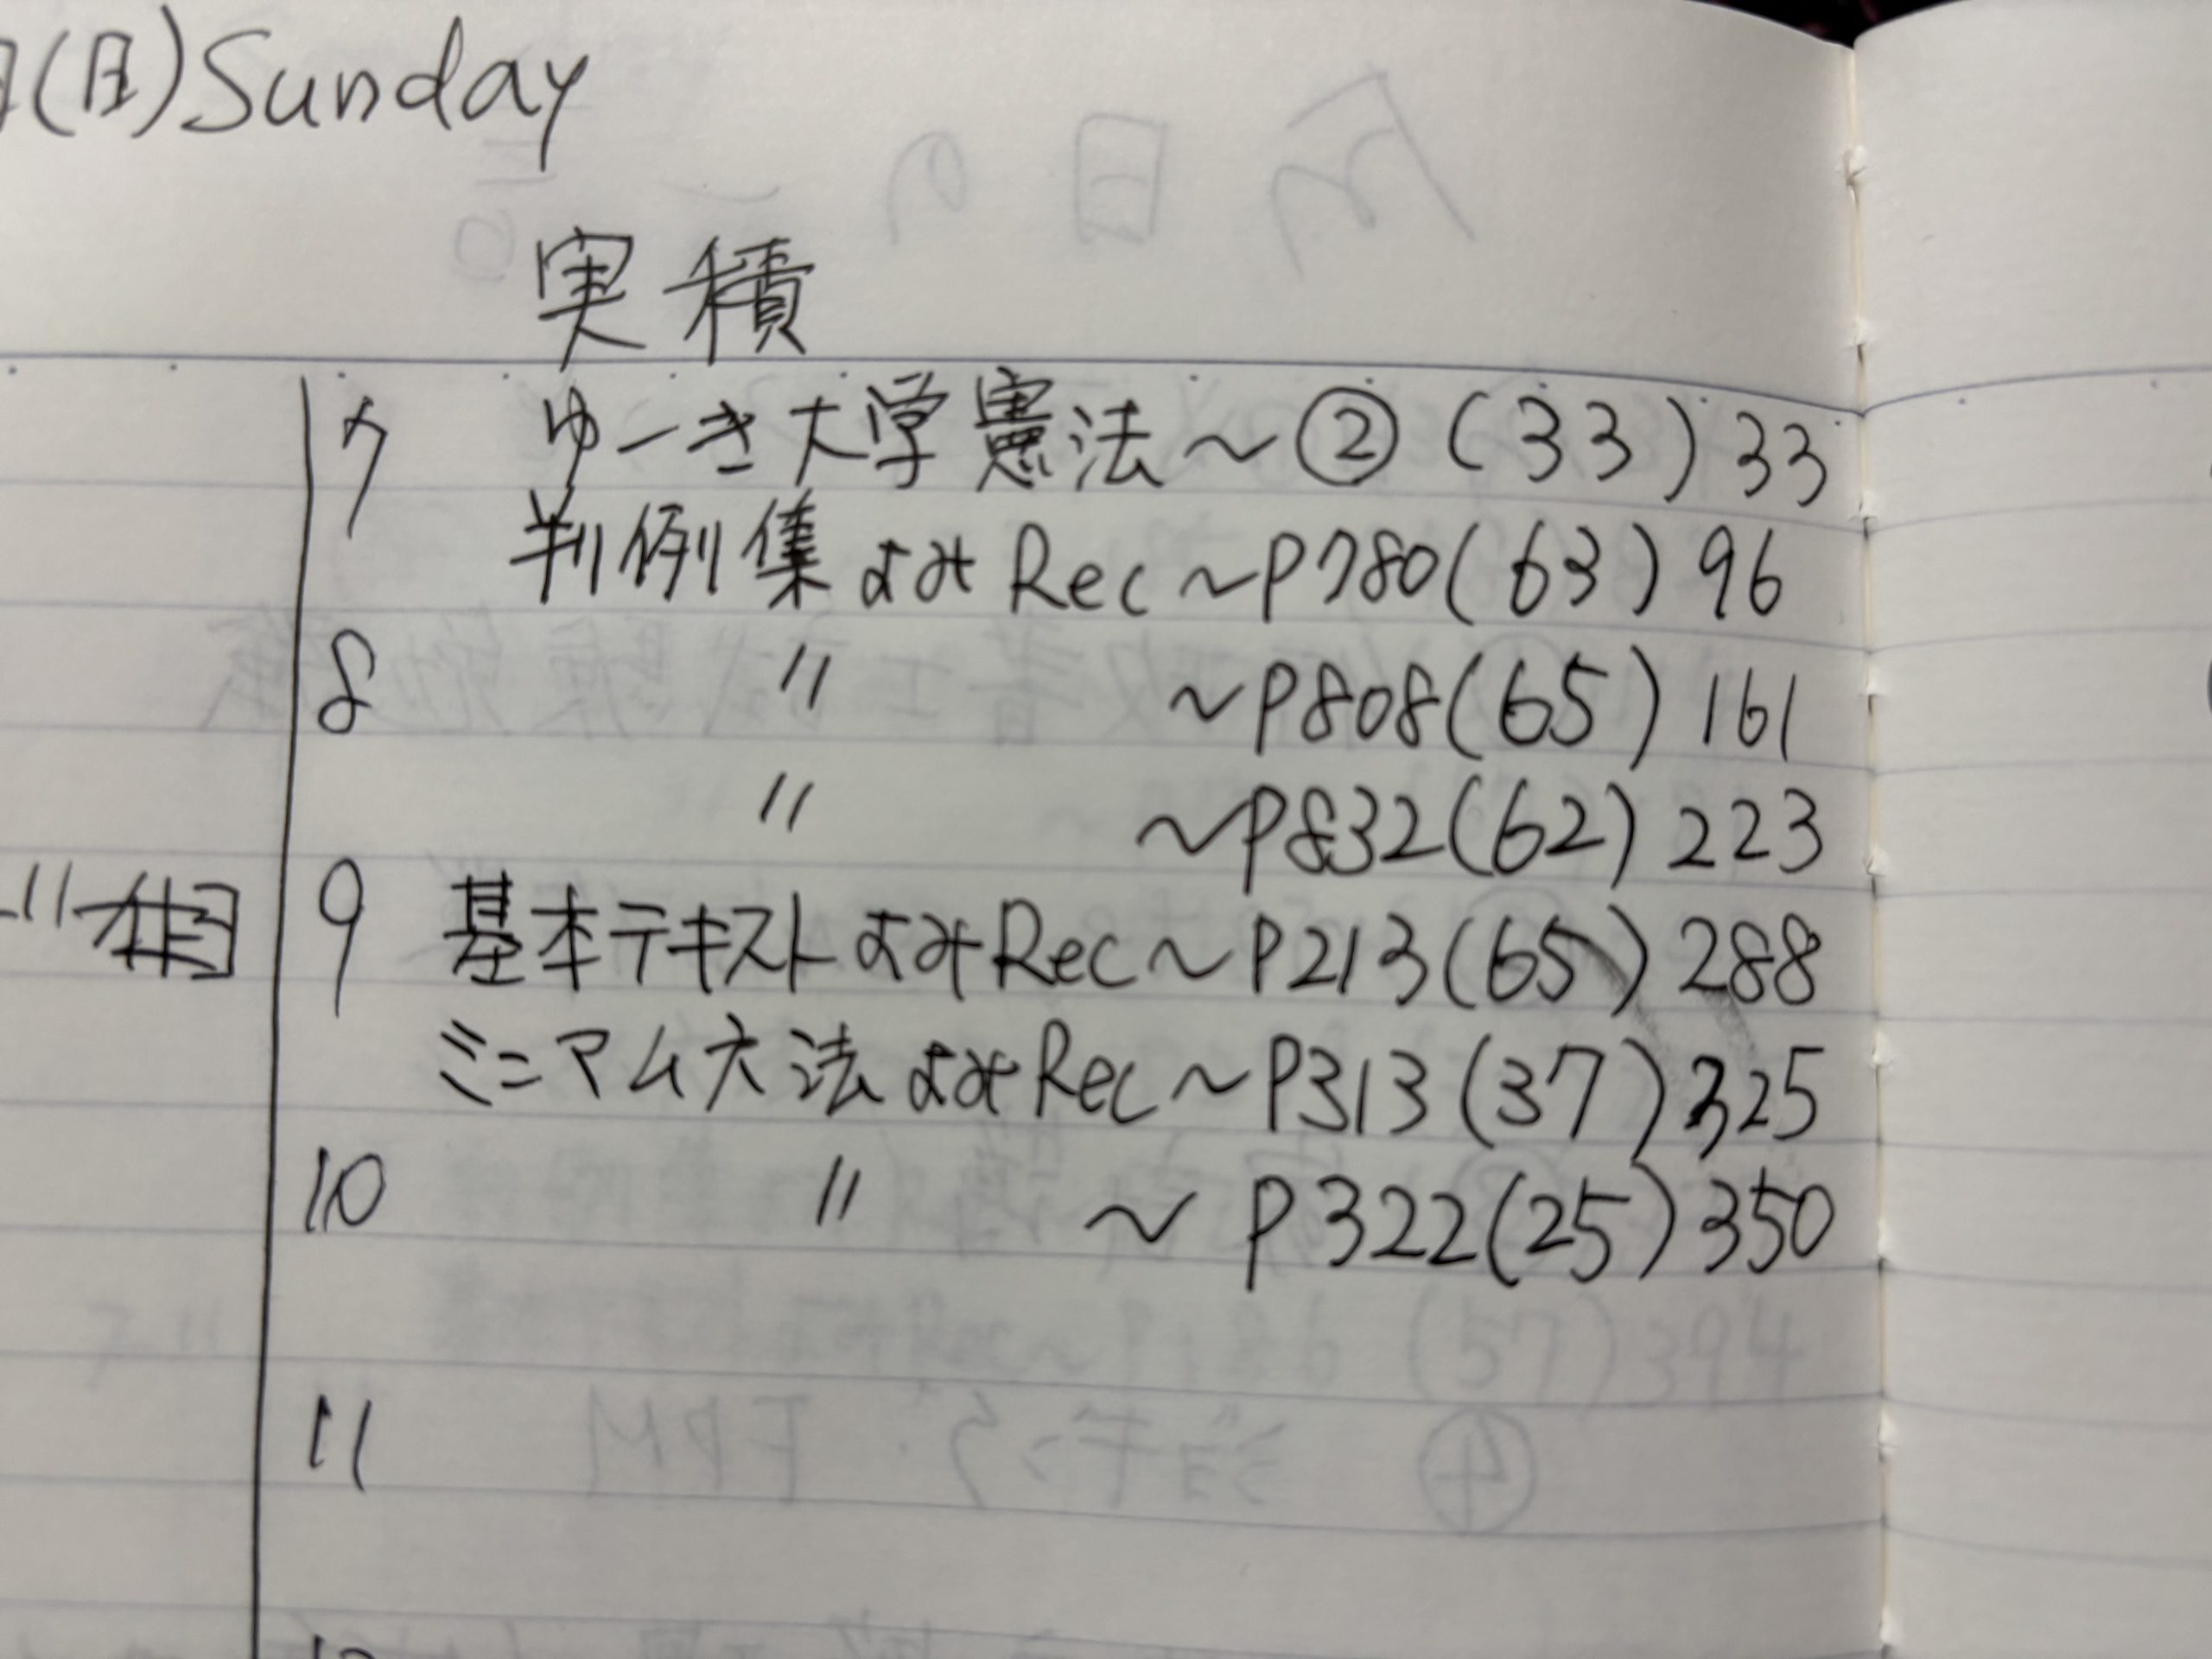 (日) Sunday
実積
7 ゆーき大学憲法～② (33) 33
判例集よみRec～P780(63) 96
8 〃 ～P808(65) 161
〃 ～P832(62) 223
9 基本テキストよみRec～P213(65) 288
ミニマム六法よみRec～P313(37) 325
10 〃 ～P322(25) 350
11